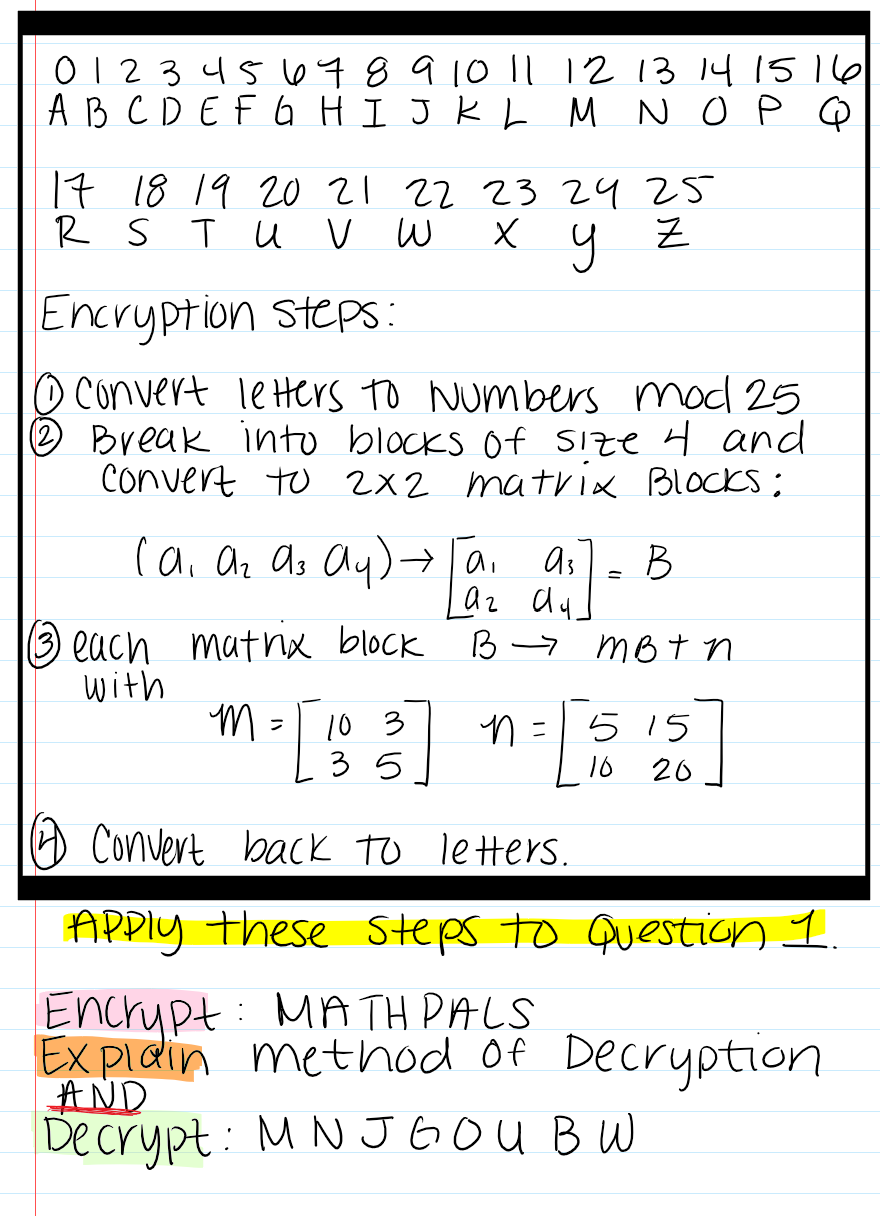 0 1 2 3 4 5 6 7 8 9 10 11 12 13 14 15 16
A B C D E F G H I J K L M N O P Q
17 18 19 20 21 22 23 24 25
R S T U V W X Y Z
Encryption steps:
① Convert letters to Numbers mod 25
② Break into blocks of size 4 and
convert to 2x2 matrix Blocks:
(a₁ a₂ a₃ a₄) → [a₁ a₃
a₂ a₄] = B
③ each matrix block B → mB + n
with
m = [10 3
3 5] n = [5 15
10 20]
④ Convert back to letters.
APPly these steps to Question 1.
Encrypt: MATHPALS
Explain method of Decryption
AND
Decrypt: MNJGOUBW